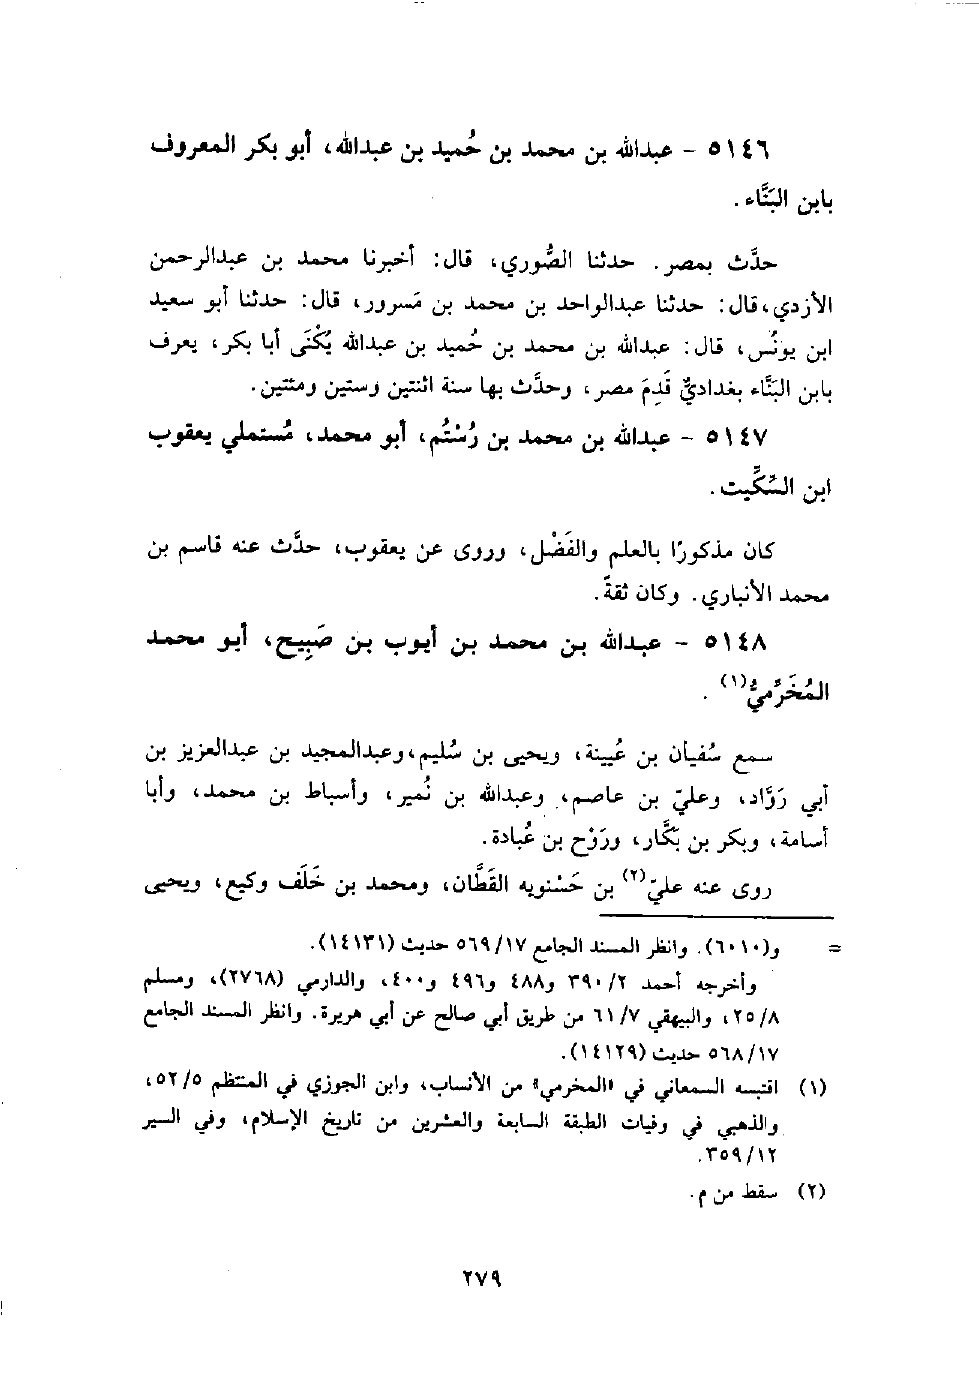 ٥١٤٦ - عبدالله بن محمد بن حُميد بن عبدالله، أبو بكر المعروف
بابن البَنَّاء.
حدَّث بمصر. حدثنا الصُّوري، قال: أخبرنا محمد بن عبدالرحمن
الأزدي، قال: حدثنا عبدالواحد بن محمد بن مَسرور، قال: حدثنا أبو سعيد
ابن يونُس، قال: عبدالله بن محمد بن حُميد بن عبدالله يُكْنَى أبا بكر، يعرف
بابن البَنَّاء بغداديٌّ قَدِمَ مصر، وحدَّث بها سنة اثنتين وستين ومئتين.
٥١٤٧ - عبدالله بن محمد بن رُسْتُم، أبو محمد، مُستملي يعقوب
ابن السِّكِّيت.
كان مذكورًا بالعلم والفَضْل، وروى عن يعقوب، حدَّث عنه قاسم بن
محمد الأنباري. وكان ثقةً.
٥١٤٨ - عبدالله بن محمد بن أيوب بن صَبِيح، أبو محمد
المُخَرِّميُّ(١).
سمع سُفيان بن عُيينة، ويحيى بن سُليم، وعبدالمجيد بن عبدالعزيز بن
أبي رَوَّاد، وعليّ بن عاصم، وعبدالله بن نُمير، وأسباط بن محمد، وأبا
أسامة، وبكر بن بَكَّار، ورَوْح بن عُبادة.
روى عنه عليّ(٢) بن حَسْنويه القَطَّان، ومحمد بن خَلَف وكيع، ويحيى
= و(٦٠١٠). وانظر المسند الجامع ٥٦٩/١٧ حديث (١٤١٣١).
وأخرجه أحمد ٣٩٠/٢ و٤٨٨ و٤٩٦ و٤٠٠، والدارمي (٢٧٦٨)، ومسلم
٢٥/٨، والبيهقي ٦١/٧ من طريق أبي صالح عن أبي هريرة. وانظر المسند الجامع
٥٦٨/١٧ حديث (١٤١٢٩).
(١) اقتبسه السمعاني في «المخرمي» من الأنساب، وابن الجوزي في المنتظم ٥٢/٥،
والذهبي في وفيات الطبقة السابعة والعشرين من تاريخ الإسلام، وفي السير
٣٥٩/١٢.
(٢) سقط من م.
٢٧٩